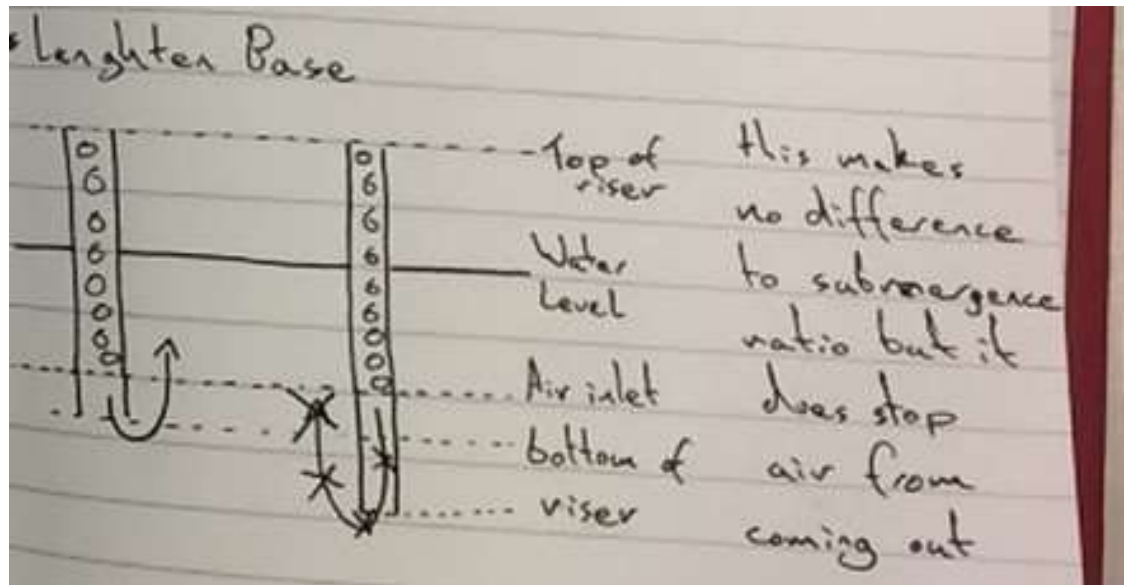 Lenghten Base
Top of
riser
Water
Level
Air inlet
bottom of
riser
this makes
no difference
to submergence
ratio but it
does stop
air from
coming out